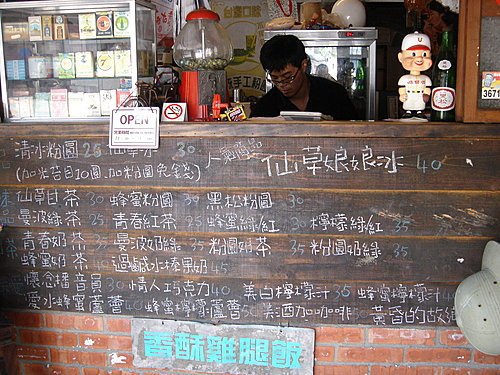 OPEN
3671
清冰粉圓 25 仙草冰 30 人氣商品 仙草娘娘冰 40
(加水苔目10圓.加粉圓免金錢)
仙草甘茶 30 蜂蜜粉圓 39 黑松粉圓 30
曼波綠茶 25 青春紅茶 25 蜂蜜綠紅 30 檸檬綠紅 35
青春奶茶 35 曼波奶綠 35 粉圓奶茶 35 粉圓奶綠 35
蜂蜜奶茶 40 過鹹水榛果奶 45
懷念播音員 30 情人巧克力 40 美白檸檬汁 35 蜂蜜檸檬汁
愛水蜂蜜蘆薈 40 蜂蜜檸檬蘆薈 50 美酒加咖啡 30 黃昏的故鄉
香酥雞腿飯